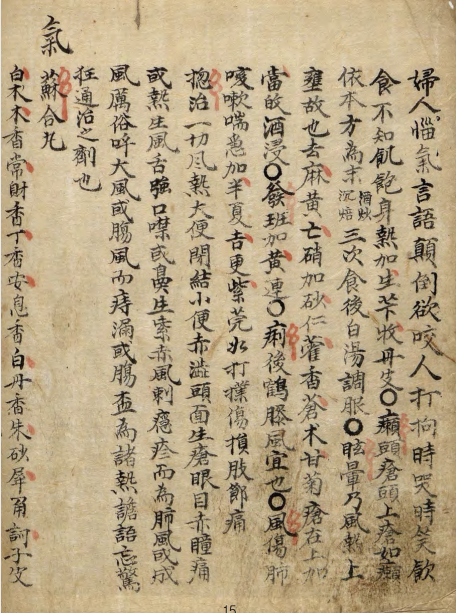 婦人惱氣言語顛倒欲咬人打拘時哭時笑飮
食不知飢飽身熱加生芐牧丹皮〇癩頭瘡頭上瘡如癩
依本方為末酒炒沉焙三次食後白湯調服〇眩暈乃風熱上
壅故也去麻黃亡硝加砂仁藿香蒼术甘菊瘡在上加
當飯酒浸〇發班加黃連〇痢後鶴膝風宜也〇風傷肺
咳嗽喘急加半夏吉更紫莞〇打撲傷損肢節痛
揔治一切風熱大便閉結小便赤澁頭面生瘡眼目赤瞳痛
或熱生風舌强口噤或鼻生索赤風刺癮疹而為肺風或成
風厲俗呼大風或膓風而痔漏或膓盃為諸熱譫語忘驚
狂通治之劑也
氣
蘇合元
白木木香常財香丁香安息香白丹香朱砂犀角訶子皮
15